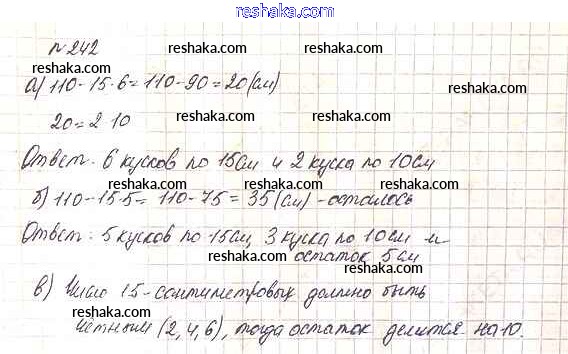 reshaka.com
№242
reshaka.com
reshaka.com
reshaka.com
а) 110-15·6=110-90=20(см)
reshaka.com
reshaka.com
20=2·10
reshaka.com
Ответ: 6 кусков по 15см и 2 куска по 10см
reshaka.com
б) 110-15·5= 110-75= 35(см) -осталось
reshaka.com
reshaka.com
Ответ: 5 кусков по 15см, 3 куска по 10см и
остаток 5см
reshaka.com
reshaka.com
в) Число 15-сантиметровых должно быть
reshaka.com
reshaka.com
чётным (2,4,6), тогда остаток делится на 10.
reshaka.com